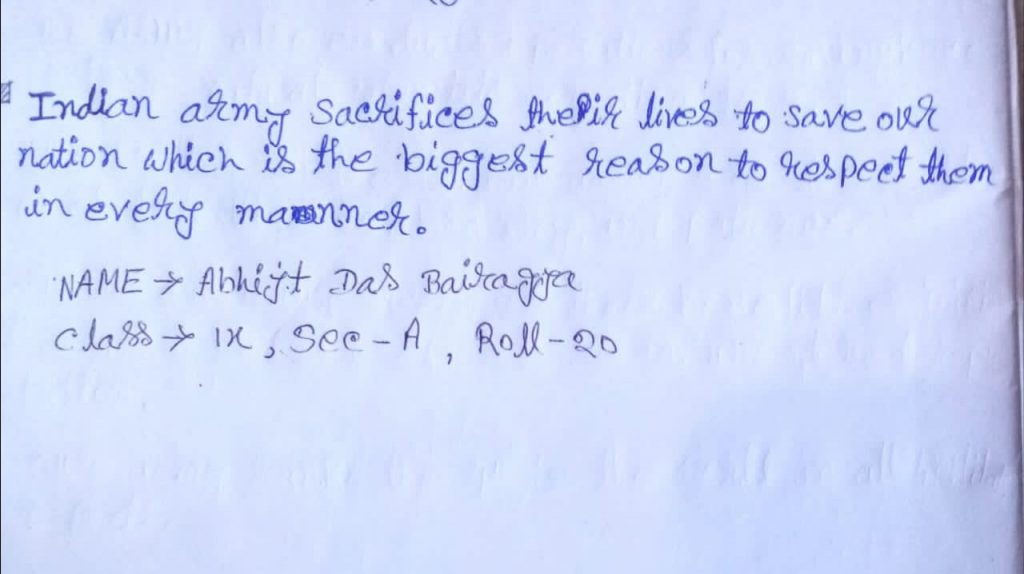 Indian army sacrifices their lives to save our
nation which is the biggest reason to respect them
in every manner.
NAME → Abhijit Das Bairagya
Class → IX, Sec - A, Roll - 20